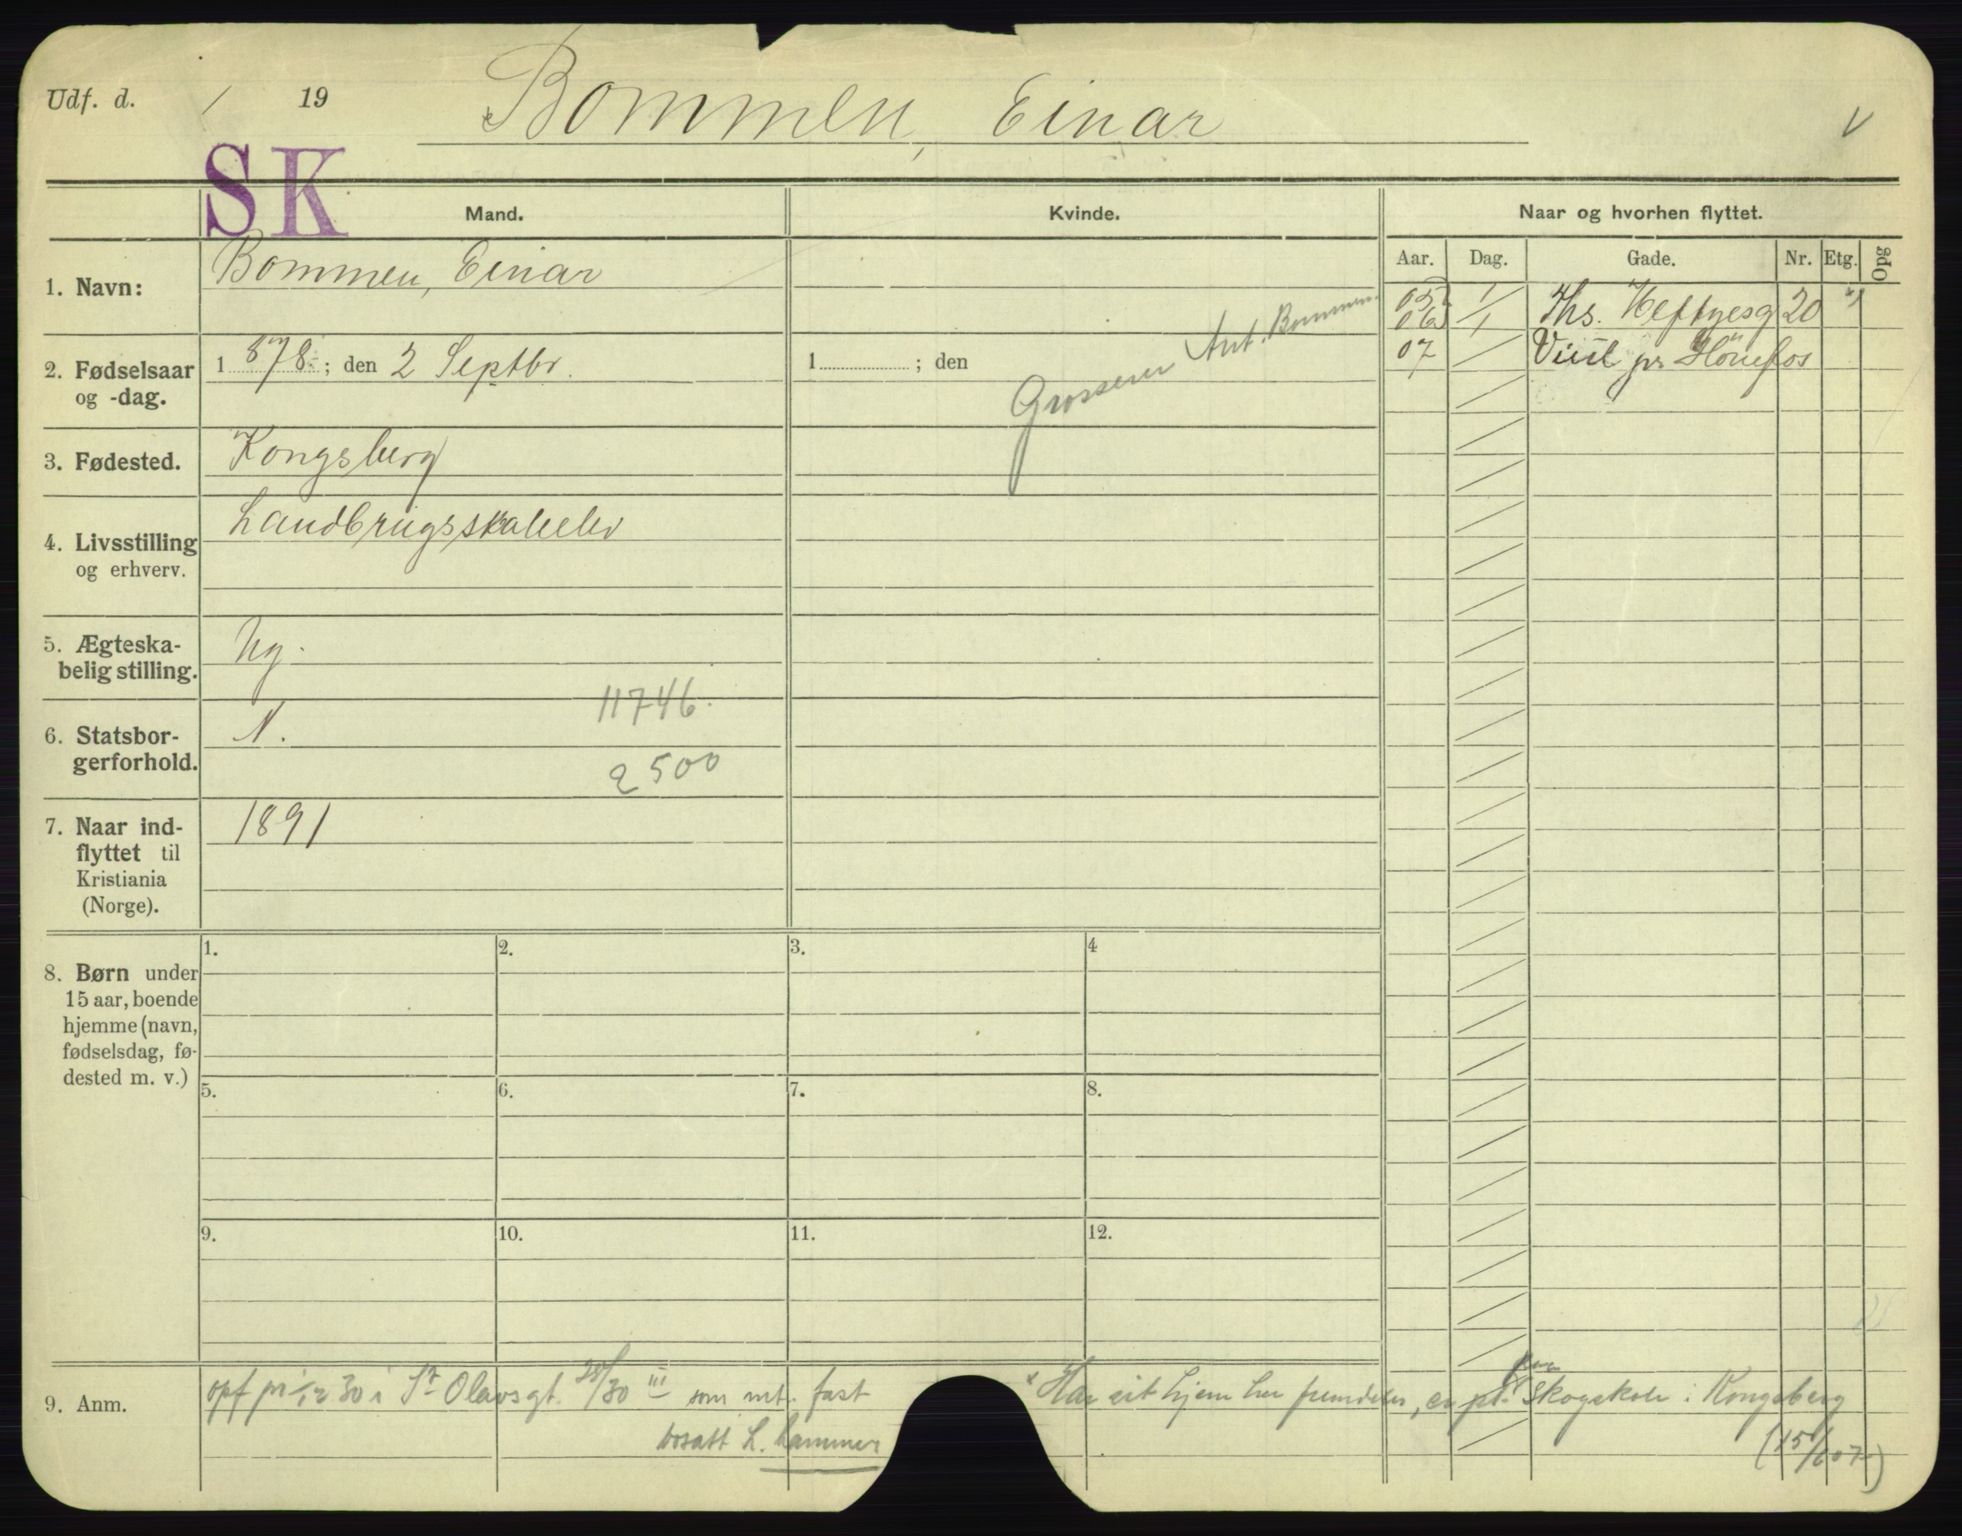 Udf. d. / 19
Bommen, Einar
V
SK
Mand.
Kvinde.
Naar og hvorhen flyttet.
Aar. Dag. Gade. Nr. Etg. Opg
1. Navn:
Bommen, Einar
05 1/1 Ths. Heftyesg 20 x)
06
07 / Viul pr Hönefos
2. Fødselsaar
og -dag.
1 878 ; den 2 Septbr.
1 ; den
Grosserer Ant. Bommen.
3. Fødested.
Kongsberg
4. Livsstilling
og erhverv.
Landbrugsskoleelev
5. Ægteska-
belig stilling.
Ug.
6. Statsbor-
gerforhold.
N.
11746.
2500
7. Naar ind-
flyttet til
Kristiania
(Norge).
1891
8. Børn under
15 aar, boende
hjemme (navn,
fødselsdag, fø-
dested m. v.)
1. 2. 3. 4
5. 6. 7. 8.
9. 10. 11. 12.
9. Anm.
opf pr 1/12 30 i St Olavsgt. 28/30 III som mt. fast
bosatt L.hammer
x Har sit hjem her fremdeles, er pt. paa Skogskole i Kongsberg
(15/6 07)